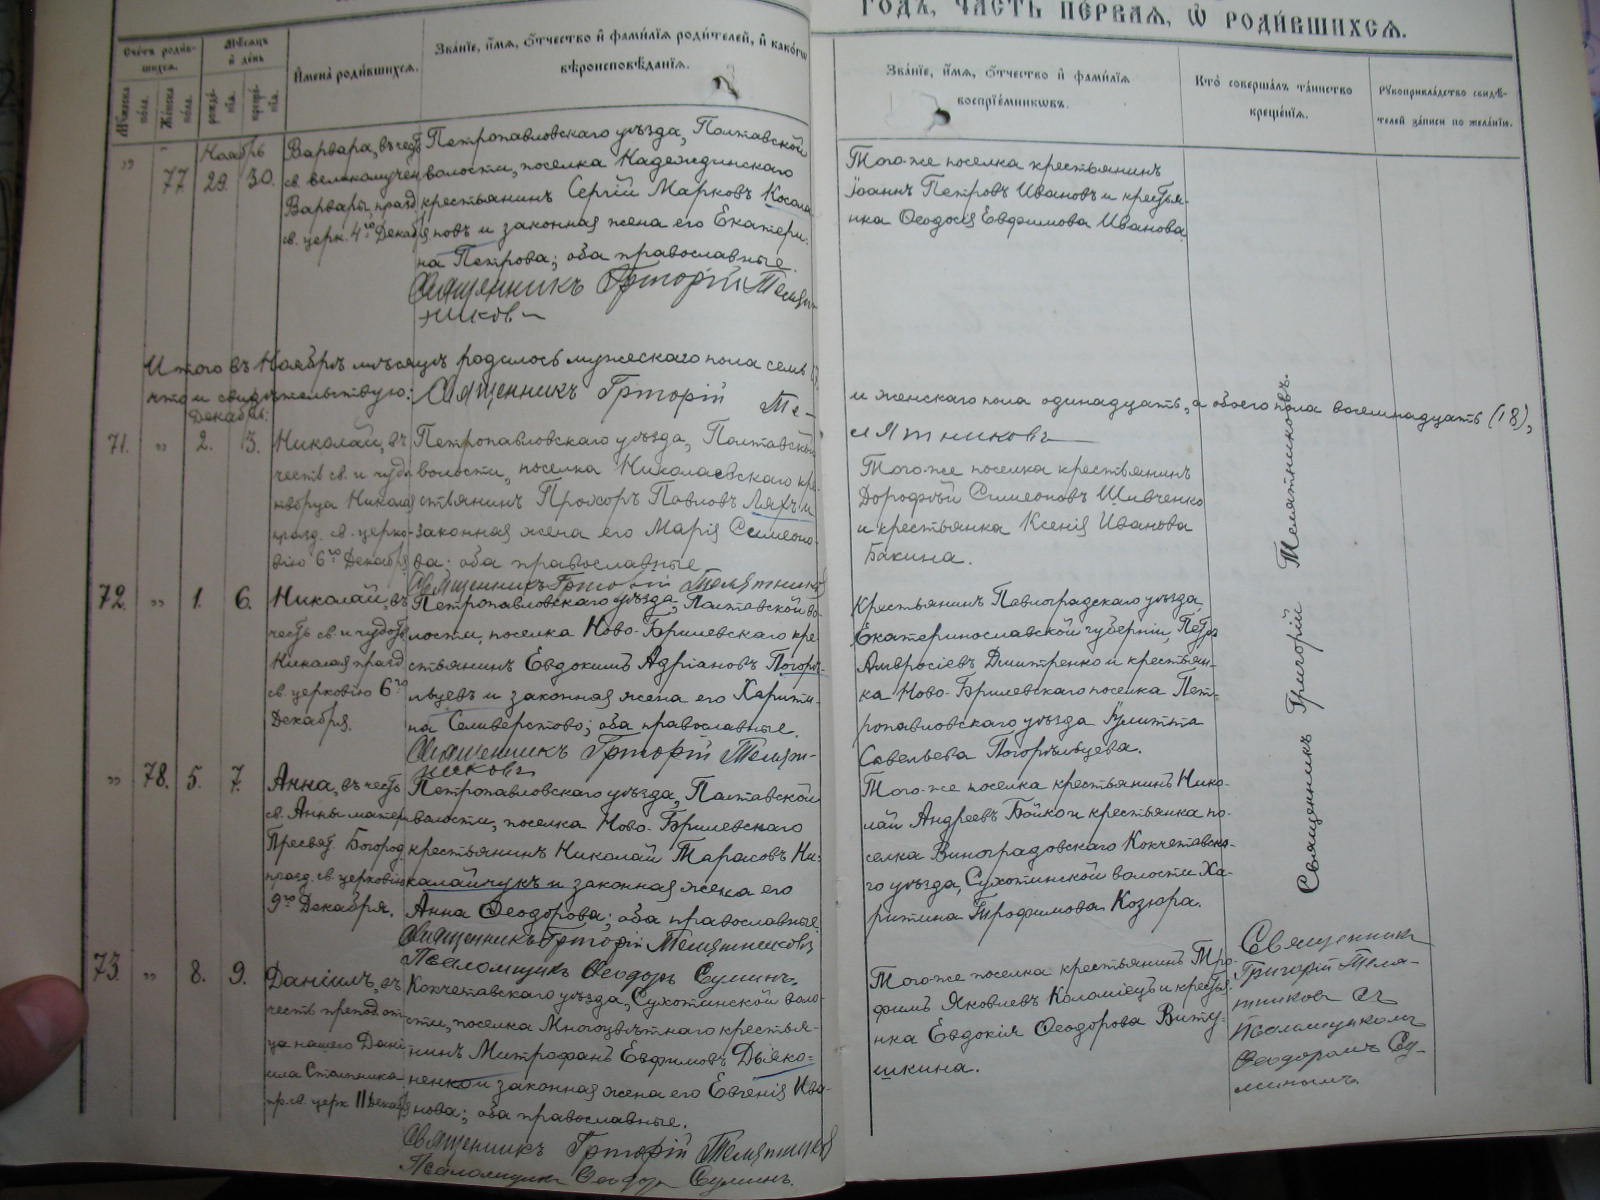 ГОДЪ, ЧАСТЬ ПЕРВАЯ, Ѿ РОДИВШИХСЯ.
Счетъ родив-
шихся.
Мѣсяцъ
и день
Имена родившихся.
Званіе, имя, отчество и фамилія родителей, и какогѡ
вѣроисповѣданія.
Мужеска
пола.
Женска
пола.
рожде-
нія.
креще-
нія.
Званіе, имя, отчество и фамилія
воспріемникѡвъ.
Кто совершалъ таинство
крещенія.
Рукоприкладство свидѣ-
телей записи по желанію.
„ 77 Ноябрь 29. 30.
Варвара, въ честь
св. великомучен
Варвары, празд
св. церк. 4го Декабря
Петропавловскаго уѣзда, Полтавской
волости, поселка Надеждинскаго
крестьянинъ Сергій Марковъ Косола
повъ и законная жена его Екатери-
на Петрова; оба православные.
Священникъ Григорій Телят-
никовъ
Того-же поселка крестьянинъ
Іоаннъ Петровъ Ивановъ и крестья-
нка Ѳеодосія Евфимова Иванова
Итого въ Ноябрѣ мѣсяцѣ родилось мужескаго пола семь (7)
и женскаго пола одинадцать, а обоего пола восемнадцать (18),
что и свидѣтельствую: Священникъ Григорій Те-
лятниковъ
Декабрь:
71. „ 2. 3.
Николай, въ
честь св. и чудо
творца Никола
празд. св. церко-
вію 6го Декабря
Петропавловскаго уѣзда, Полтавской
волости, поселка Николаевскаго кре-
стьянинъ Прохоръ Павловъ Ляхъ и
законная жена его Марія Симеоно-
ва; оба православные
Священникъ Григорій Телятников
Того-же поселка крестьянинъ
Дорофѣй Симеоновъ Шивченко
и крестьянка Ксенія Иванова
Бакина.
72. „ 1. 6.
Николай, въ
честь св. и чудотв
Николая празд
св. церковію 6го
Декабря.
Петропавловскаго уѣзда, Полтавской во-
лости, поселка Ново-Брилевскаго кре
стьянинъ Евдокимъ Адріановъ Погорѣ-
льцевъ и законная жена его Харити-
на Селиверстова; оба православные.
Священникъ Григорій Телят-
никовъ
Крестьянинъ Павлоградскаго уѣзда
Екатеринославской губерніи, Петръ
Амвросіевъ Дмитренко и крестьян-
ка Ново-Брилевскаго поселка Пет-
ропавловскаго уѣзда Іулитта
Савельева Погорѣльцева.
„ 78. 5. 7.
Анна, въ честь
св. Анны матери
Пресвят. Богород
празд. св. церковію
9го Декабря.
Петропавловскаго уѣзда, Полтавской
волости, поселка Ново-Брилевскаго
крестьянинъ Николай Тарасовъ Ни-
колайчукъ и законная жена его
Анна Ѳеодорова; оба православные
Священникъ Григорій Телятниковъ
Псаломщикъ Ѳеодоръ Суминъ.
Того-же поселка крестьянинъ Нико-
лай Андреевъ Бойко и крестьянка по-
селка Виноградовскаго Кокчетавска-
го уѣзда, Сухотинской волости Ха-
ритина Трофимова Козюра.
Священникъ Григорій Телятниковъ.
73. „ 8. 9.
Даніилъ, въ
честь препод. от
ца нашего Дані
ила Столпника
пр. св. церк 11 Декабря
Кокчетавскаго уѣзда, Сухотинской воло-
сти, поселка Многоцвѣтнаго крестья-
нинъ Митрофанъ Евфимовъ Дьяко-
ненко и законная жена его Евгенія Ива-
нова; оба православные.
Священникъ Григорій Телятников
Псаломщикъ Ѳеодоръ Суминъ.
Того-же поселка крестьянинъ Тро-
фимъ Яковлевъ Коломіецъ и крестья
нка Евдокія Ѳеодорова Виту-
шкина.
Священникъ
Григорій Теля-
тниковъ съ
Псаломщикомъ
Ѳеодоромъ Су-
минымъ